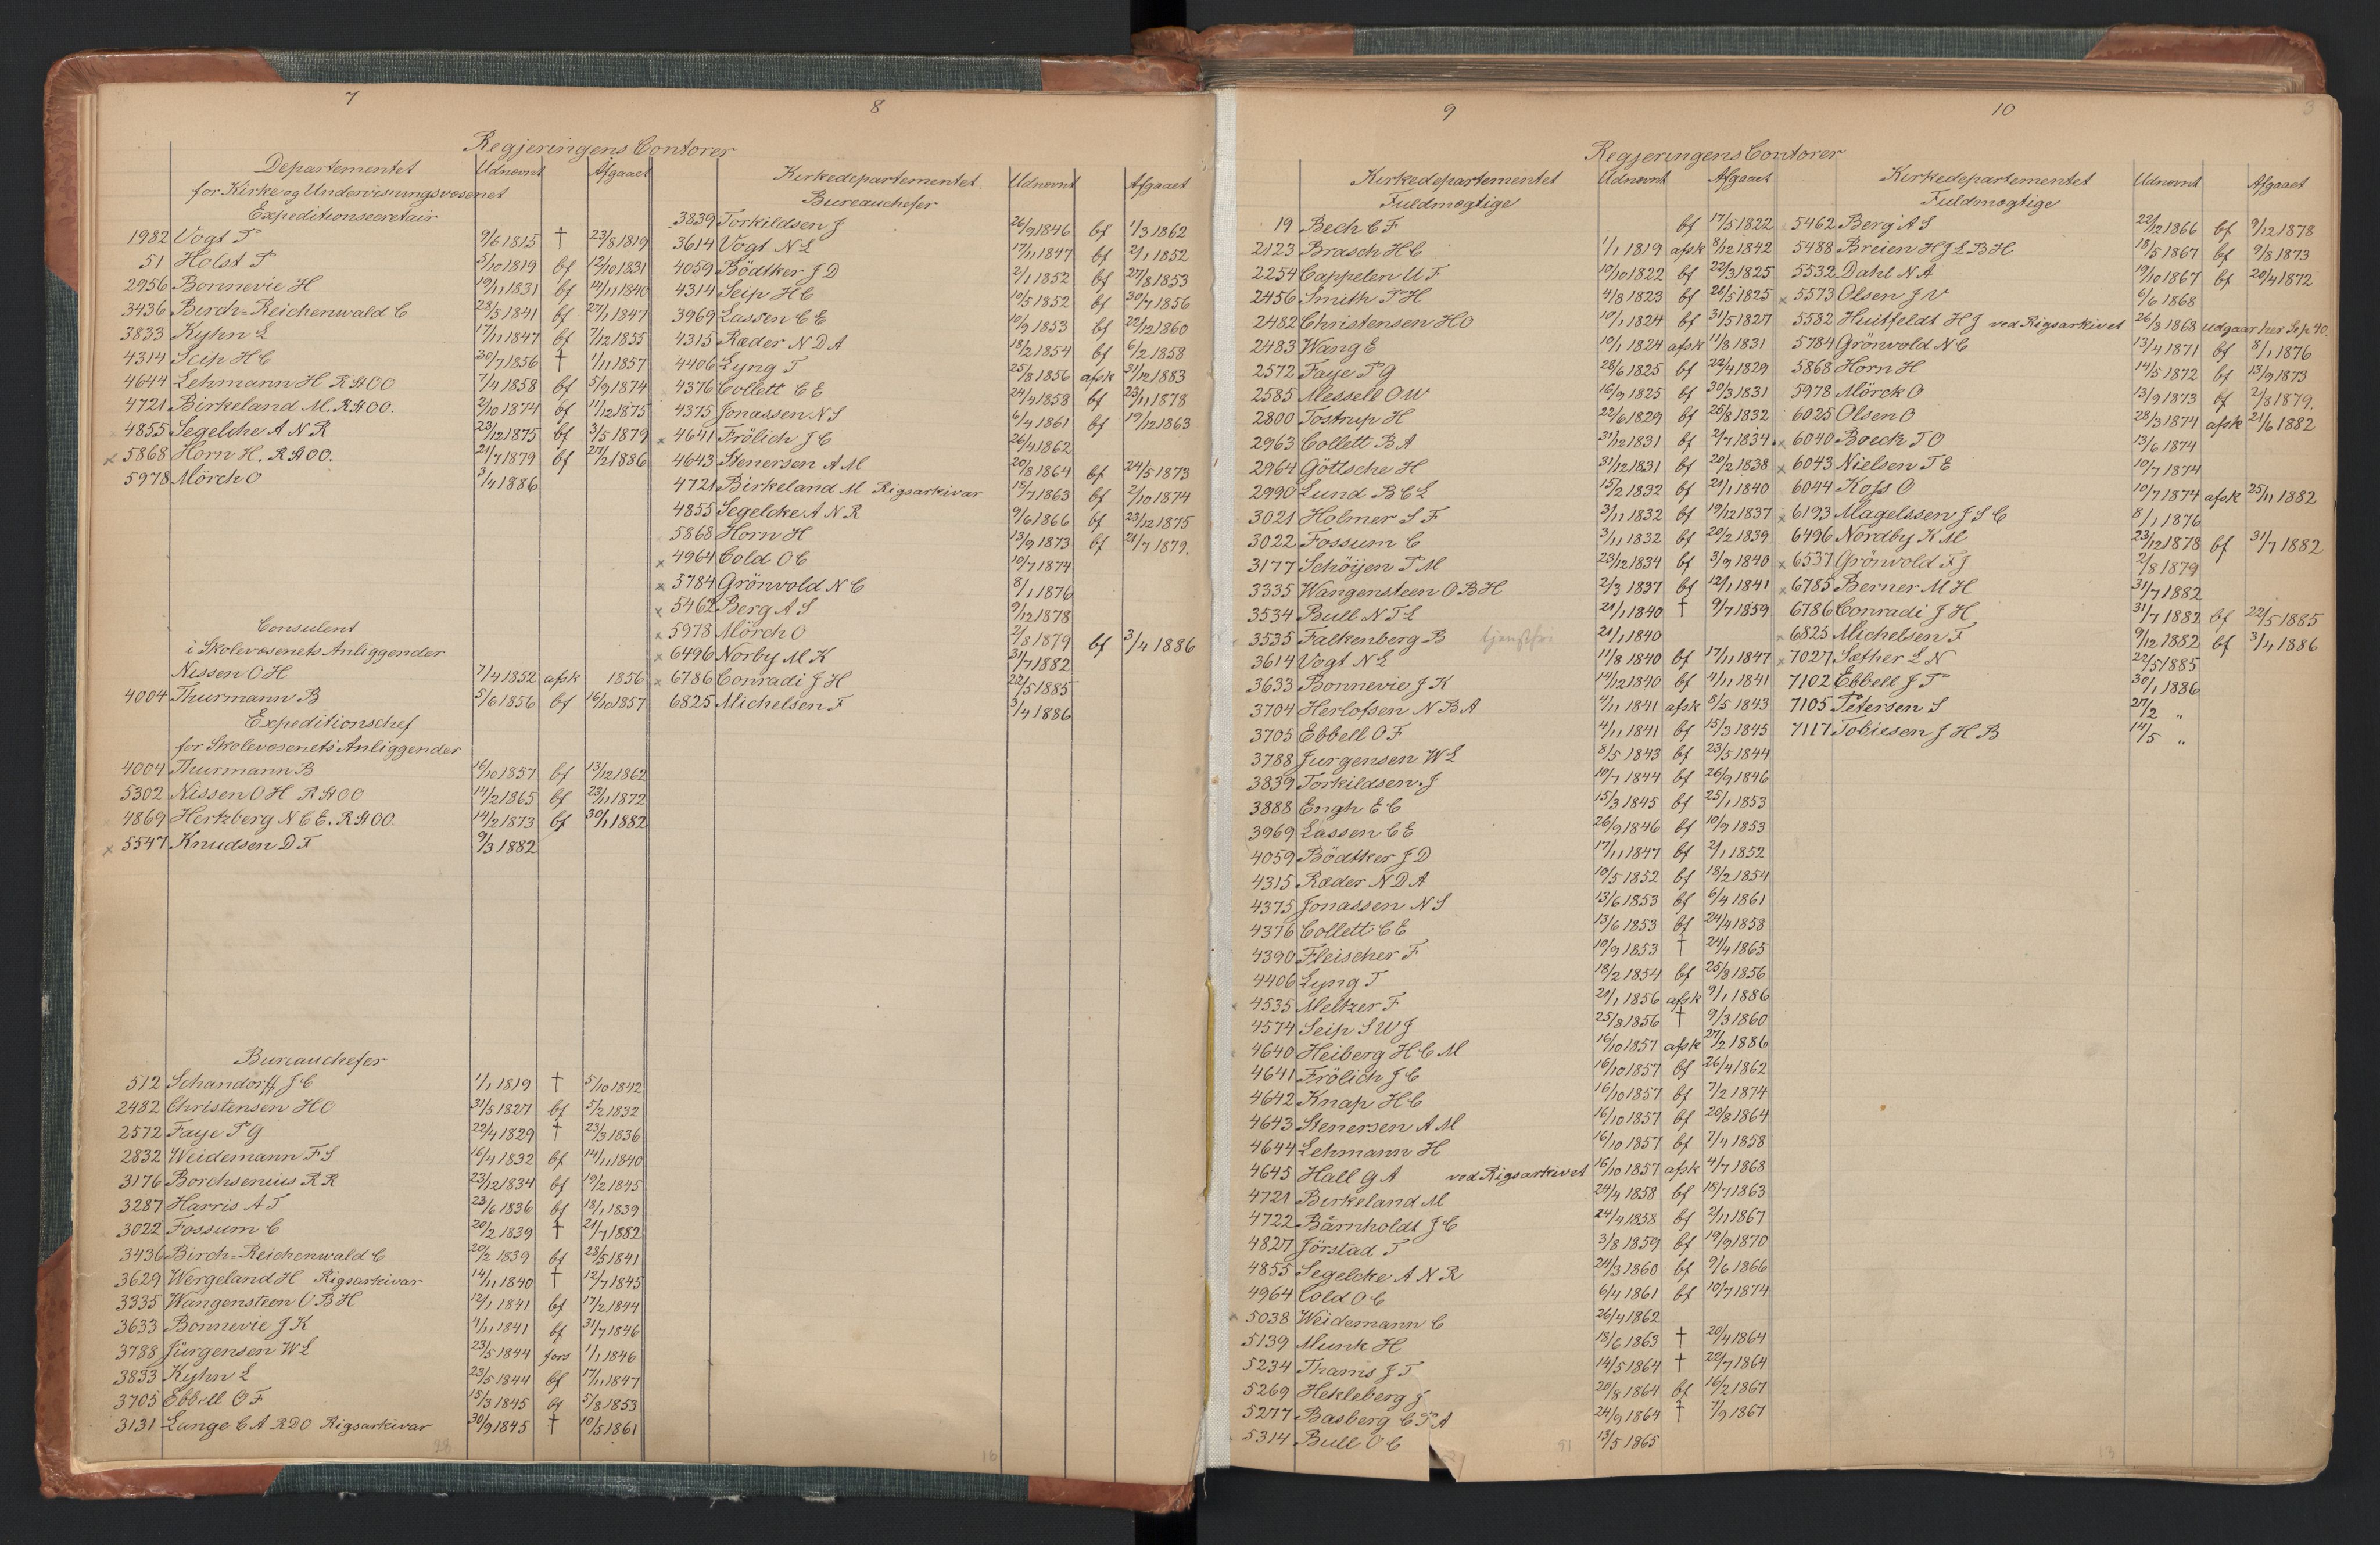 7
Regjeringens Contorer
Departementet Udnævnt Afgaaet
for Kirke og Undervisningsvæsenet
Expeditionsecretair
1982 Vogt P 9/6 1815 † 23/8 1819
51 Holst P 5/10 1819 bf 12/10 1831
2956 Bonnevie H 19/11 1831 bf 14/11 1840
3436 Birch-Reichenwald C 28/5 1841 bf 27/1 1847
3833 Kyhn L 17/11 1847 bf 7/12 1855
4314 Seip H C 30/7 1856 † 1/11 1857
4644 Lehmann H R St OO 7/4 1858 bf 5/9 1874
4721 Birkeland M. R St OO. 2/10 1874 bf 11/12 1875
4855 Segelche A N R 23/12 1875 bf 3/5 1879
x 5868 Horn H. R St OO. 21/7 1879 bf 27/2 1886
5978 Mörch O 3/4 1886
Consulent
i Skolevæsenets Anliggender
Nissen O H 7/4 1852 afsk 1856
4004 Thurmann B 5/6 1856 bf 16/10 1857
Expeditionschef
for Skolevæsenets Anliggender
4004 Thurmann B 16/10 1857 bf 13/12 1862
5302 Nissen O H R St OO 14/2 1865 bf 23/11 1872
4869 Hertzberg N C E. R St OO. 14/2 1873 bf 30/1 1882
x 5547 Knudsen D F 9/3 1882
Bureauchefer
512 Schandorff J C 1/1 1819 † 5/10 1842
2482 Christensen H O 31/5 1827 bf 5/2 1832
2572 Faye P G 22/4 1829 † 23/3 1836
2832 Weidemann F S 16/4 1832 bf 14/11 1840
3176 Borchsenius R R 23/12 1834 bf 19/2 1845
3287 Harris A T 23/6 1836 bf 18/1 1839
3022 Fossum C 20/2 1839 † 21/7 1882
3436 Birch-Reichenwald C 20/2 1839 bf 28/5 1841
3629 Wergeland H Rigsarkivar 14/11 1840 † 12/7 1845
3335 Wangensteen O B H 12/1 1841 bf 17/2 1844
3633 Bonnevie J K 4/11 1841 bf 31/7 1846
3788 Jürgensen W L 23/5 1844 fors 1/1 1846
3833 Kyhn L 23/5 1844 bf 17/11 1847
3705 Ebbell O F 15/3 1845 bf 5/8 1853
3131 Lange C A R D O Rigsarkivar 30/9 1845 † 10/5 1861
8
Kirkedepartementet Udnævnt Afgaaet
Bureauchefer
3839 Torkildsen J 26/9 1846 bf 1/3 1862
3614 Vogt N L 17/11 1847 bf 2/1 1852
4059 Bödtker J D 2/1 1852 bf 27/8 1853
4314 Seip H C 10/5 1852 bf 30/7 1856
3969 Lassen C E 10/9 1853 bf 22/12 1860
4315 Ræder N D A 18/2 1854 bf 6/2 1858
4406 Lyng T 25/8 1856 afsk 31/12 1883
4376 Collett C E 24/4 1858 bf 23/11 1878
4375 Jonassen N S 6/4 1861 bf 19/12 1863
x 4641 Frölich J C 26/4 1862
4643 Stenersen A M 20/8 1864 bf 24/5 1873
4721 Birkeland M Rigsarkivar 15/7 1863 bf 2/10 1874
4855 Segelcke A N R 9/6 1866 bf 23/12 1875
5868 Horn H 13/9 1873 bf 21/7 1879.
x 4964 Cold O C 10/7 1874
x 5784 Grönvold N C 8/1 1876
x 5462 Berg A S 9/12 1878
x 5978 Mörch O 2/8 1879 bf 3/4 1886
x 6496 Norby M K 31/7 1882
x 6786 Conradi J H 22/5 1885
6825 Michelsen F 3/4 1886
16
9
Regjeringens Contorer
Kirkedepartementet Udnævnt Afgaaet
Fuldmægtige
19 Bech C F bf 17/5 1822
2123 Brasch H C 1/1 1819 afsk 8/12 1842
2254 Cappelen U F 10/10 1822 bf 22/3 1825
2456 Smith P H 4/8 1823 bf 26/5 1825
2482 Christensen H O 10/1 1824 bf 31/5 1827
2483 Wang E 10/1 1824 afsk 11/8 1831
2572 Faye P G 28/6 1825 bf 22/4 1829
2585 Messell O W 16/9 1825 bf 30/3 1831
2800 Tostrup H 22/6 1829 bf 25/8 1832
2963 Collett B A 31/12 1831 bf 2/7 1834
2964 Göttsche H 31/12 1831 bf 20/2 1838
2990 Lund B C L 15/2 1832 bf 21/1 1840
3021 Holmer S F 3/11 1832 bf 19/12 1837
3022 Fossum C 3/11 1832 bf 20/2 1839
3177 Schöijen T M 23/12 1834 bf 3/9 1840
3335 Wangensteen O B H 2/3 1837 bf 12/1 1841
3534 Bull N T L 21/1 1840 † 9/7 1859
3535 Falkenberg B 21/1 1840
3614 Vogt N L 11/8 1840 bf 17/11 1847
3633 Bonnevie J K 14/12 1840 bf 4/11 1841
3704 Herlofsen N B A 4/11 1841 afsk 8/5 1843
3705 Ebbell O F 4/11 1841 bf 15/3 1845
3788 Jurgensen W L 8/5 1843 bf 23/5 1844
3839 Torkildsen J 10/7 1844 bf 26/9 1846
3888 Engh E C 15/3 1845 bf 25/1 1853
3969 Lassen C E 26/9 1846 bf 10/9 1853
4059 Bödtker J D 17/11 1847 bf 2/1 1852
4315 Ræder N D A 10/5 1852 bf 18/2 1854
4375 Jonassen N S 13/6 1853 bf 6/4 1861
4376 Collett C E 13/6 1853 bf 24/4 1858
4390 Fleischer F 10/9 1853 † 24/4 1865
4406 Lyng T 18/2 1854 bf 25/8 1856
4535 Meltzer F 21/1 1856 afsk 9/1 1886
4574 Seip S W J 25/8 1856 † 9/3 1860
4640 Heiberg H C M 16/10 1857 afsk 27/2 1886
4641 Frölich J C 16/10 1857 bf 26/4 1862
4642 Knap H C 16/10 1857 bf 7/2 1874
4643 Stenersen A M 16/10 1857 bf 20/8 1864
4644 Lehmann H 16/10 1857 bf 7/4 1858
4645 Hall G A ved Rigsarkivet 16/10 1857 afsk 4/7 1868
4721 Birkeland M 24/4 1858 bf 18/7 1863
4722 Bärnholdt J C 24/4 1858 bf 2/11 1867
4827 Jörstad T 3/8 1859 bf 19/9 1870
4855 Segelcke A N R 24/3 1860 bf 9/6 1866
4964 Cold O C 6/4 1861 bf 10/7 1874
x 5038 Weidemann C 26/4 1862
5139 Munk H 18/6 1863 † 20/4 1864
5234 Thams J T 14/5 1864 † 22/7 1864
5269 Hekleberg J 20/8 1864 bf 16/2 1867
5277 Basberg C P A 24/9 1864 † 7/9 1867
5314 Bull O C 13/5 1865
10
3
Kirkedepartementet Udnævnt Afgaaet
Fuldmægtige
5462 Berg A S 22/12 1866 bf 9/12 1878
5488 Breien H J L B H 18/5 1867 bf 9/8 1873
5532 Dahl N A 19/10 1867 bf 20/4 1872
x 5573 Olsen J V 6/6 1868
5582 Huitfeldt H J ved Rigsarkivet 26/8 1868 udgaar her
5784 Grönvold N C 13/4 1871 bf 8/1 1876
5868 Horn H 14/5 1872 bf 13/9 1873
5978 Mörck O 13/9 1873 bf 2/8 1879.
6025 Olsen O 28/3 1874 afsk 21/6 1882
x 6040 Boeck T O 13/6 1874
x 6043 Nielsen T E 10/7 1874
6044 Koss O 10/7 1874 afsk 25/11 1882
x 6193 Magelssen J S C 8/1 1876
6496 Nordby K M 23/12 1878 bf 31/7 1882
x 6537 Grönvold F J 2/8 1879
x 6785 Berner M H 31/7 1882
6786 Conradi J H 31/7 1882 bf 22/5 1885
x 6825 Michelsen F 9/12 1882 bf 3/4 1886
x 7027 Sæther L N 22/5 1885
7102 Ebbell J P 30/1 1886
7105 Petersen S 27/2 "
7117 Tobiesen J H B 14/5 "
13